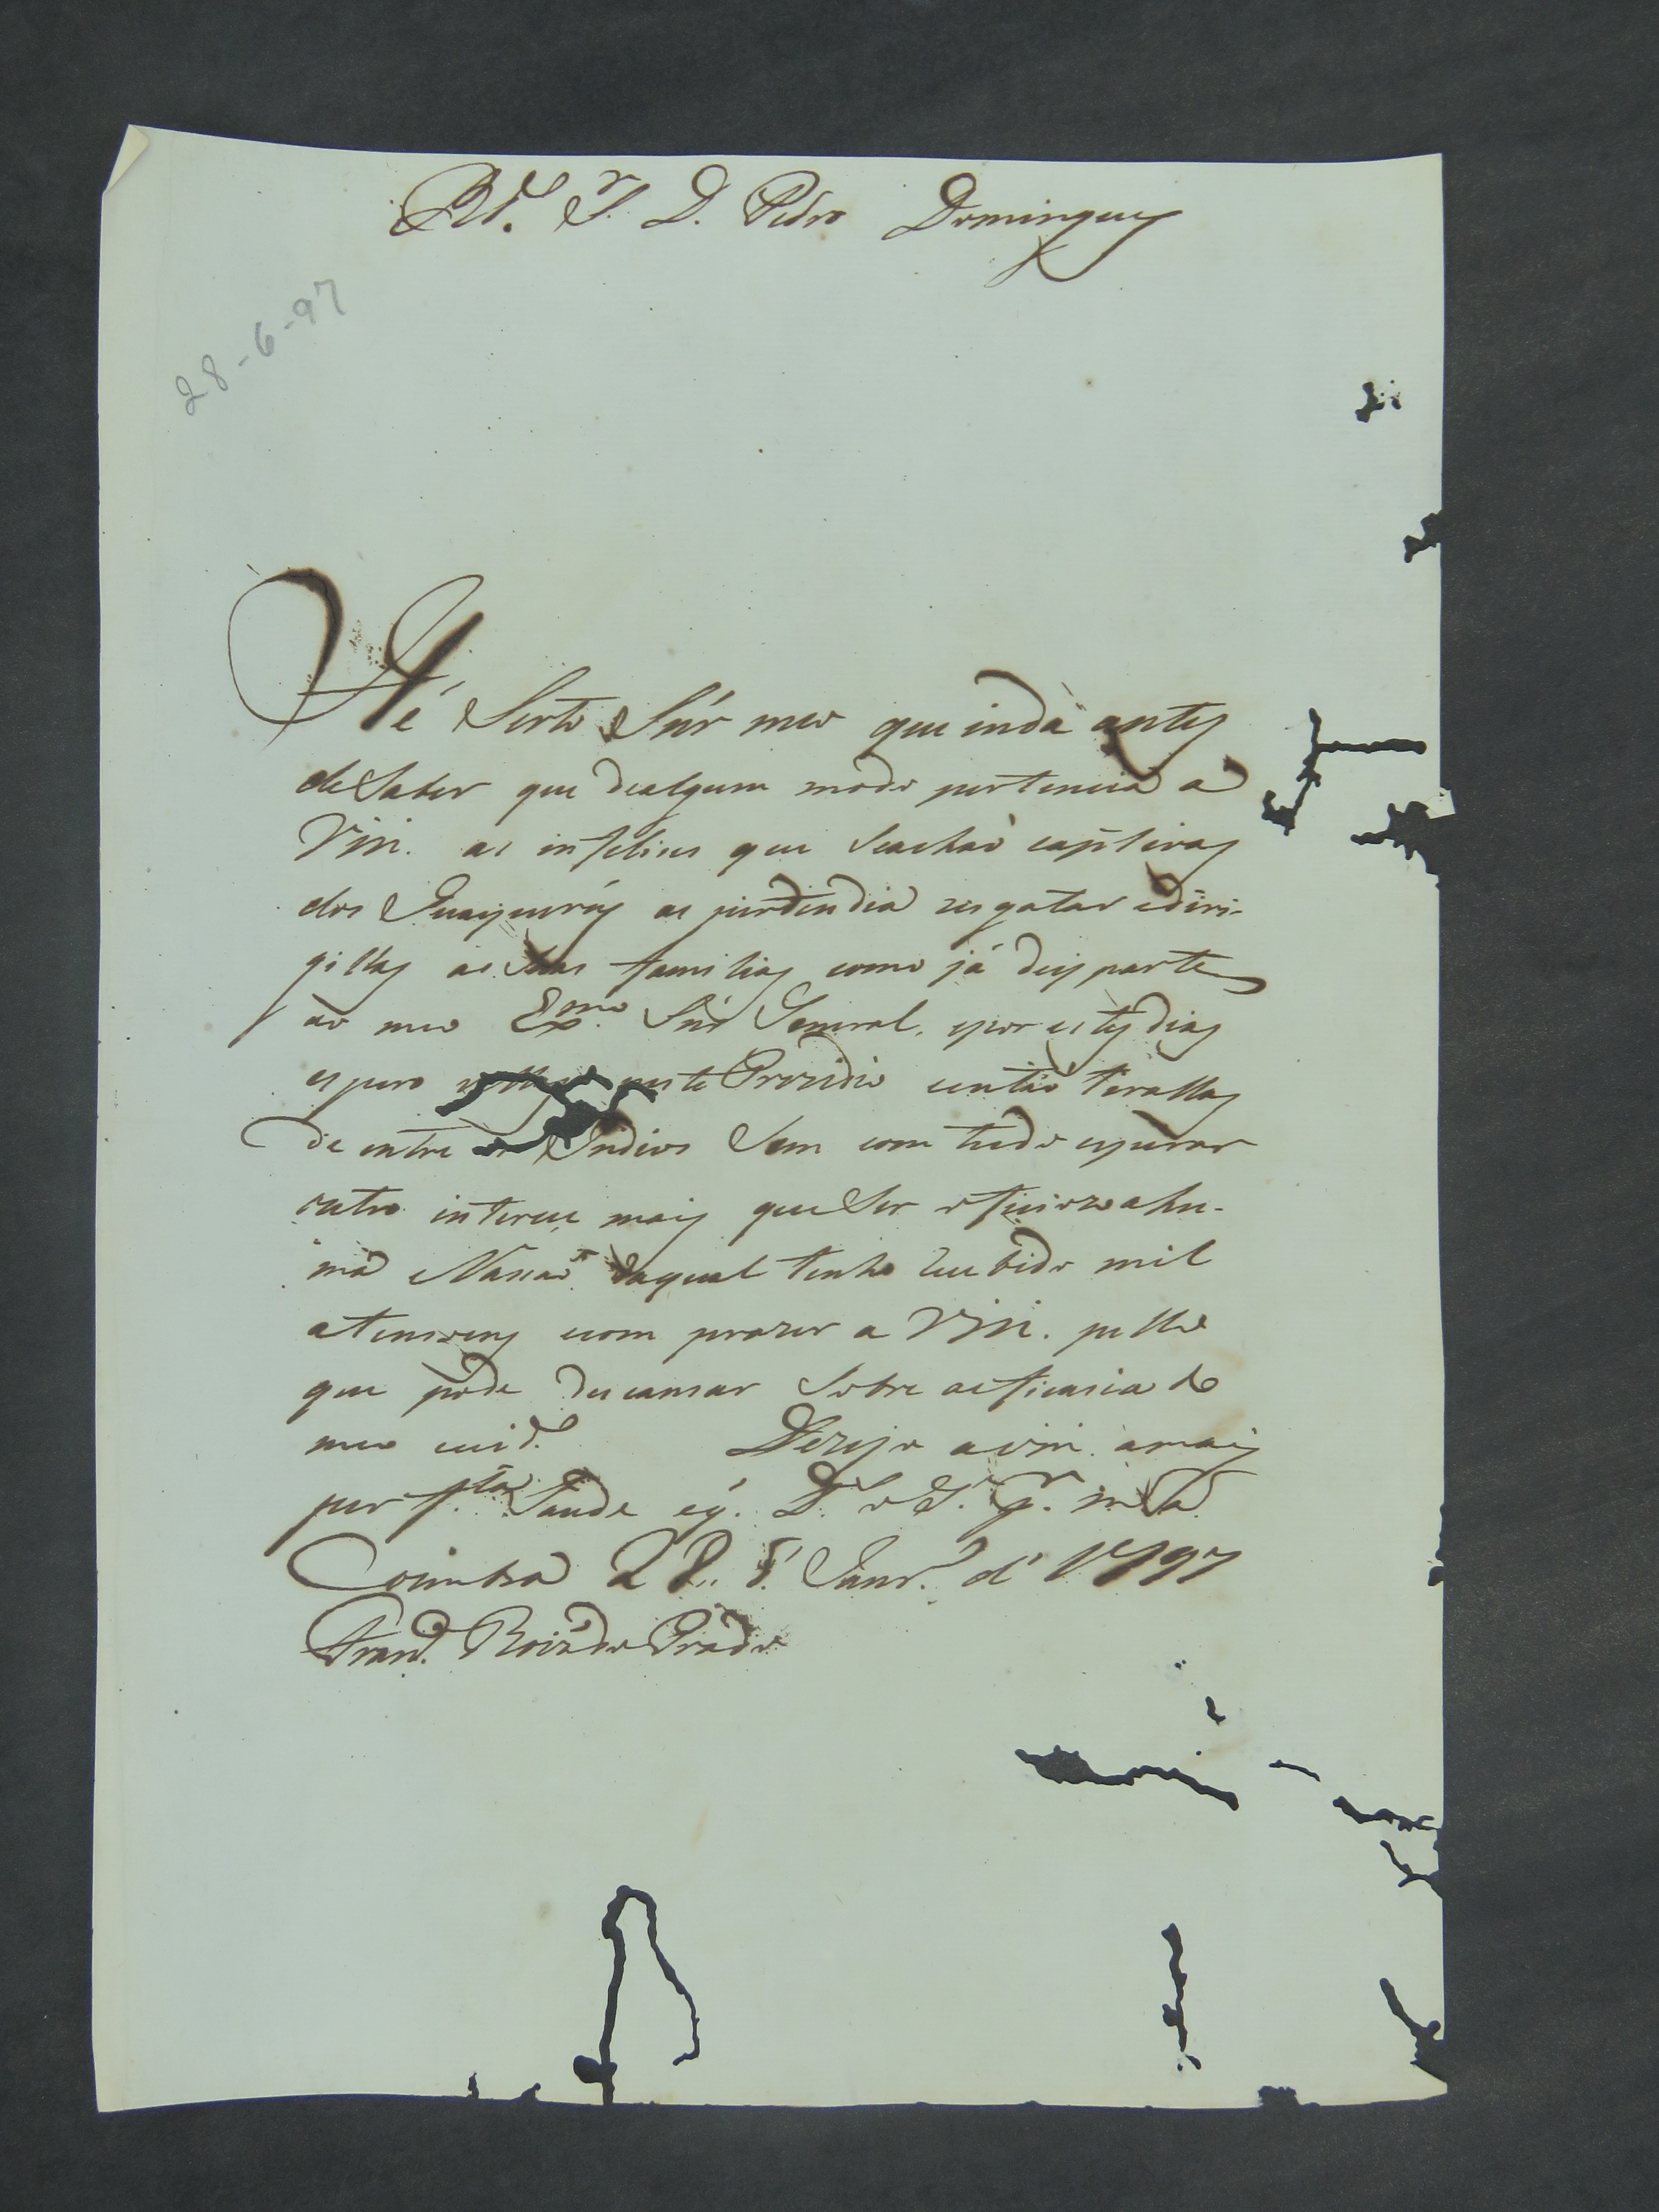 Rd.º S.r D. Pedro Domingues
28-6-97
Hé Serto Snr meo que inda antes
de Saber que dealgum modo pertencia a
Vm. as infelices que Seachaõ captivas
dos Guaycurús as pertendia resgatar ediri-
gillas ás Suas familias como já deis parte
ao meo Ex.mo Snr General, epor estes dias
espero neste Prezidio eentaõ tirallas
de entre os Indios Sem com tudo esperar
outro interece mais que Ser oficiozo ahu-
mã Nassaõ daqual tenho recebido mil
atensoens com prazer a Vm. pello
que pode descansar Sobre aeficasia do
meo cuid.º Dezejo avm. amais
perf.ta Saude eq. D.s o G. p.r m. a.
Coimbra 28 d. Janr.º d' 1797
Fran.co Roiz do Prado